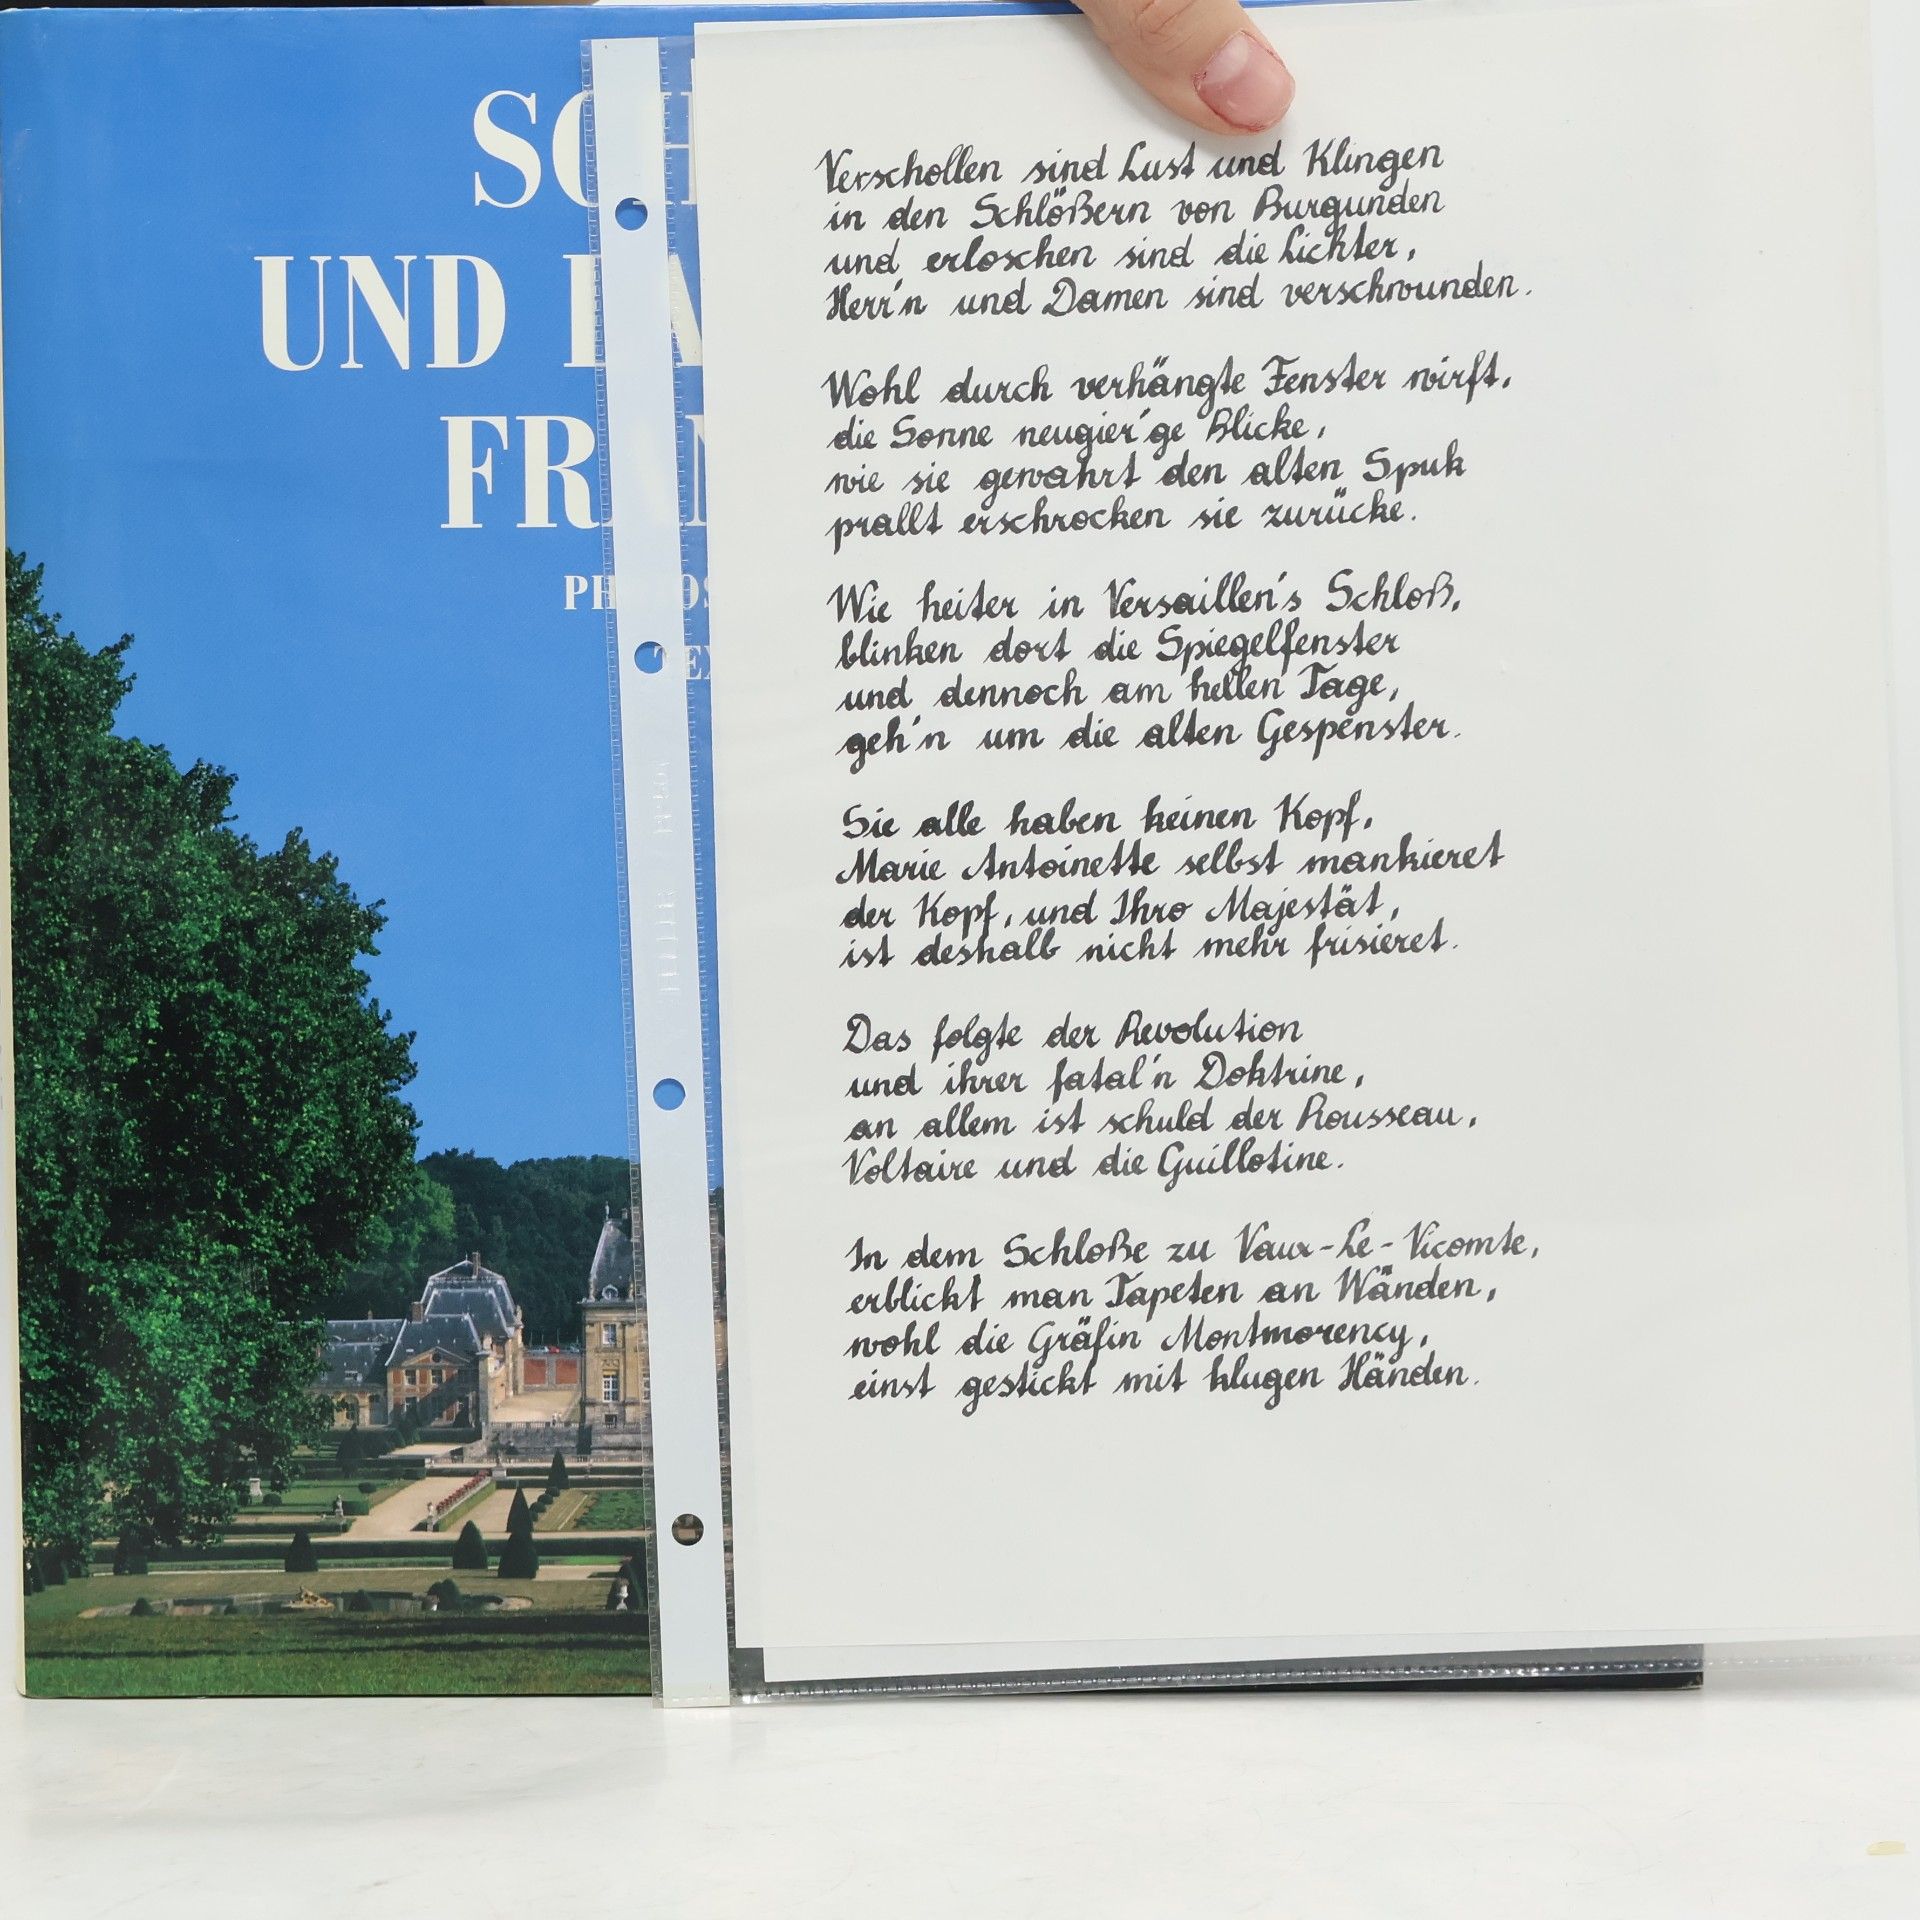 UND
Verschollen sind Lust und Klingen
in den Schlößern von Burgunden
und erloschen sind die Lichter,
Herr'n und Damen sind verschwunden.
Wohl durch verhängte Fenster wirft,
die Sonne neugier'ge Blicke,
wie sie gewahrt den alten Spuk
prallt erschrocken sie zurücke.
Wie heiter in Versaillen's Schloß,
blinken dort die Spiegelfenster
und dennoch am hellen Tage,
geh'n um die alten Gespenster.
Sie alle haben keinen Kopf,
Marie Antoinette selbst mankieret
der Kopf, und Ihro Majestät,
ist deshalb nicht mehr frisieret.
Das folgte der Revolution
und ihrer fatal'n Doktrine,
an allem ist schuld der Rousseau,
Voltaire und die Guillotine.
In dem Schloße zu Vaux-Le-Vicomte,
erblickt man Tapeten an Wänden,
wohl die Gräfin Montmorency,
einst gestickt mit klugen Händen.